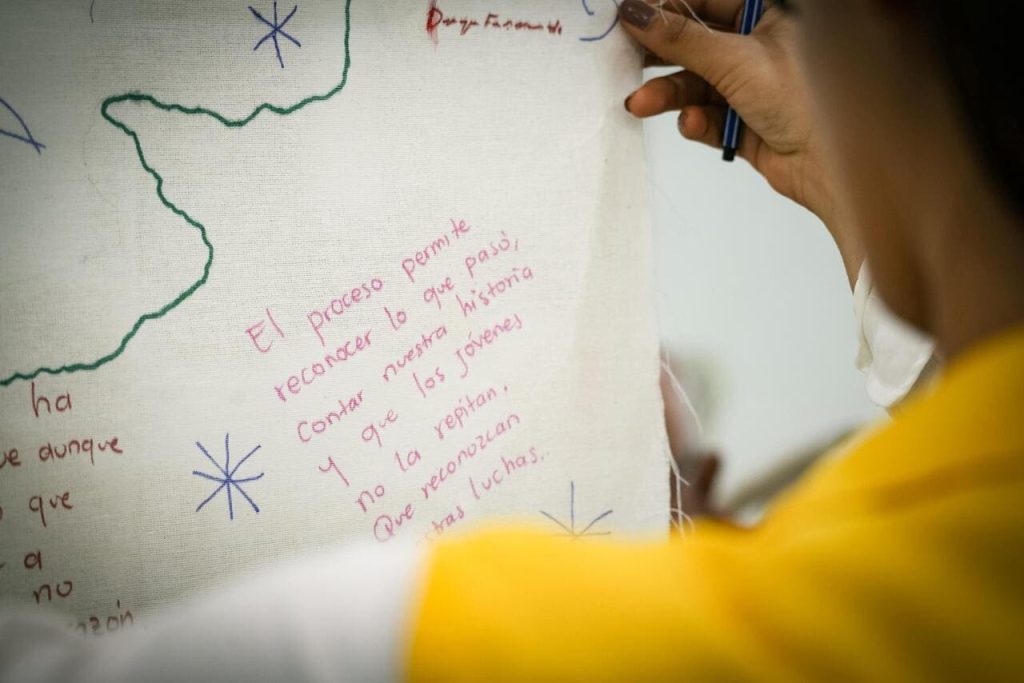 El proceso permite
reconocer lo que pasó,
contar nuestra historia
y que los jóvenes
no la repitan.
Que reconozcan
luchas..
ha
aunque
que
a
no